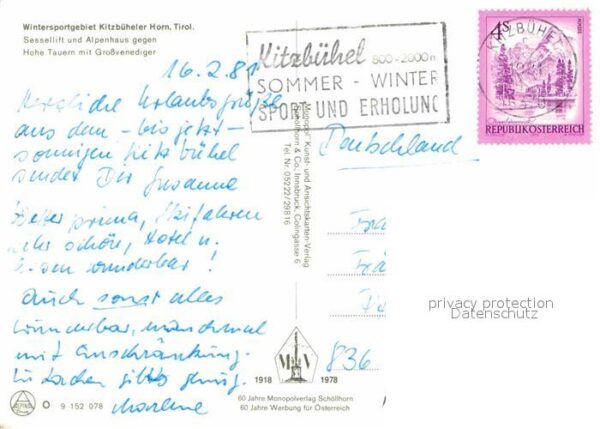 Wintersportgebiet Kitzbüheler Horn, Tirol.
Sessellift und Alpenhaus gegen
Hohe Tauern mit Großvenediger
16.2.81
Herzliche Urlaubsgrüße
aus dem - bis jetzt -
sonnigen Kitzbühel
sendet Dir Susanne
Wetter prima, Skifahren
sehr schön, Hotel u.
Essen wunderbar!
Auch sonst alles
wunderbar, manchmal
mit Einschränkung.
Zu Lachen gibts genug.
Marlene
O 9 152 078
Kitzbühel 800-2000m
SOMMER - WINTER
SPORT UND ERHOLUNG
KITZBÜHEL
4S
REPUBLIK ÖSTERREICH
Deutschland
"Monopol" Kunst- und Ansichtskarten-Verlag
Schöllhorn & Co., Innsbruck, Colingasse 6
Tel. Nr. 05222/29816
Fra
Frä
836
privacy protection
Datenschutz
M V
1918 1978
60 Jahre Monopolverlag Schöllhorn
60 Jahre Werbung für Österreich